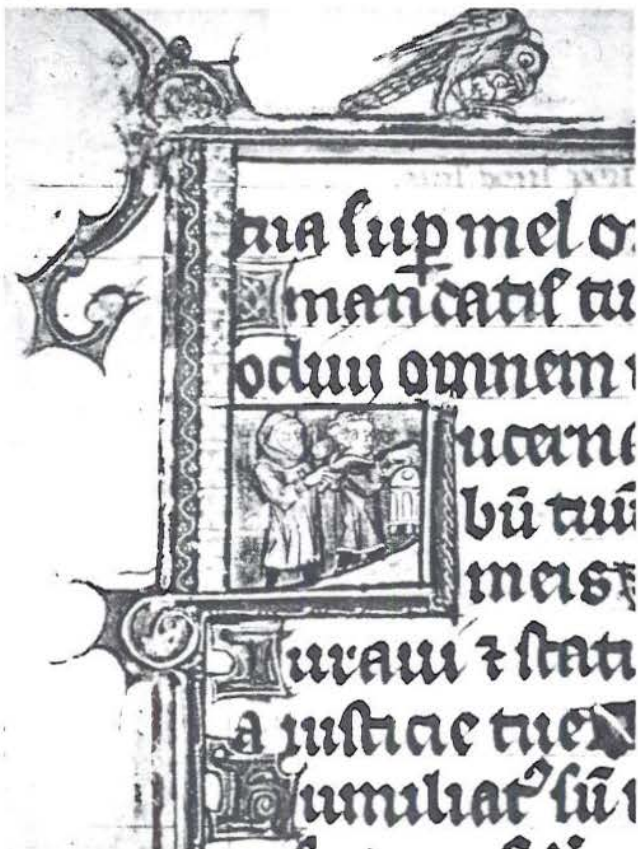 tua sup mel o
mandatis tu
odivi omnem
Lucerne
bū tuū
meis
Iuravi ⁊ stati
a iusticie tue
Humiliatꝰ sū